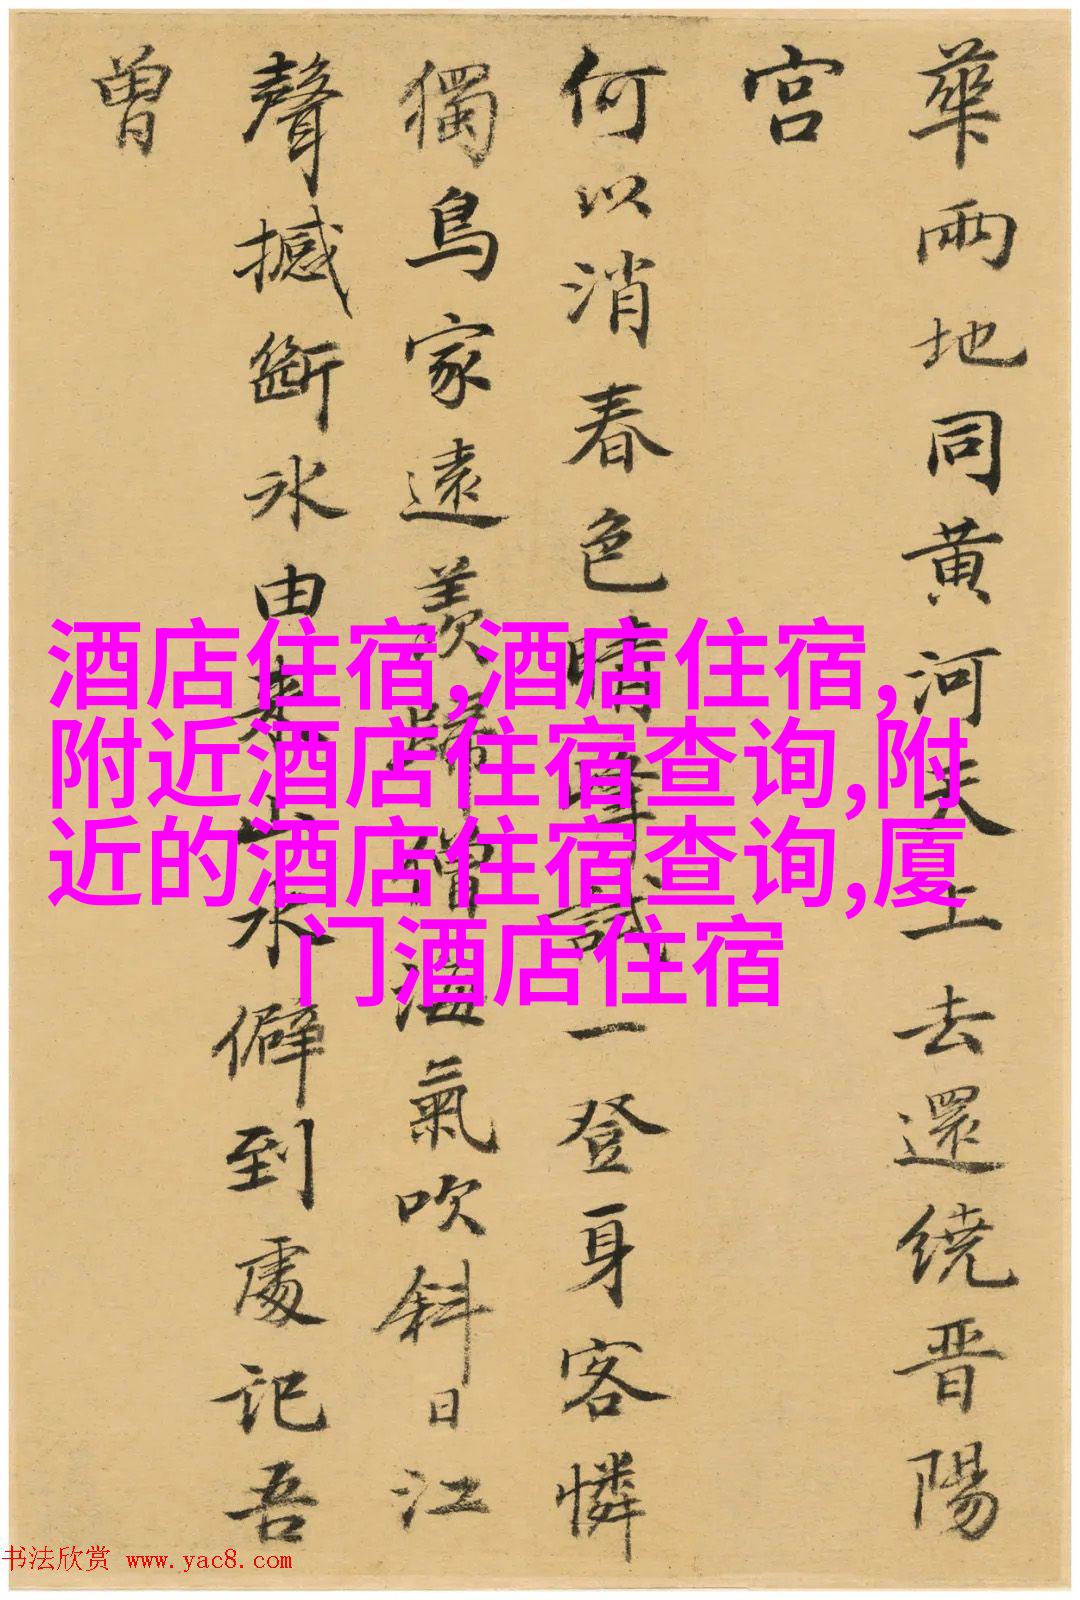 華兩地同黄河天上去還绕晋陽
宫
何以消春色晴峰試一登身客憐
獨鳥家遠羨歸僧海氣吹斜日江
聲撼斷冰由来山水僻到處記吾
曾
酒店住宿,酒店住宿,
附近酒店住宿查询,附
近的酒店住宿查询,厦
门酒店住宿
书法欣赏 www.yac8.com